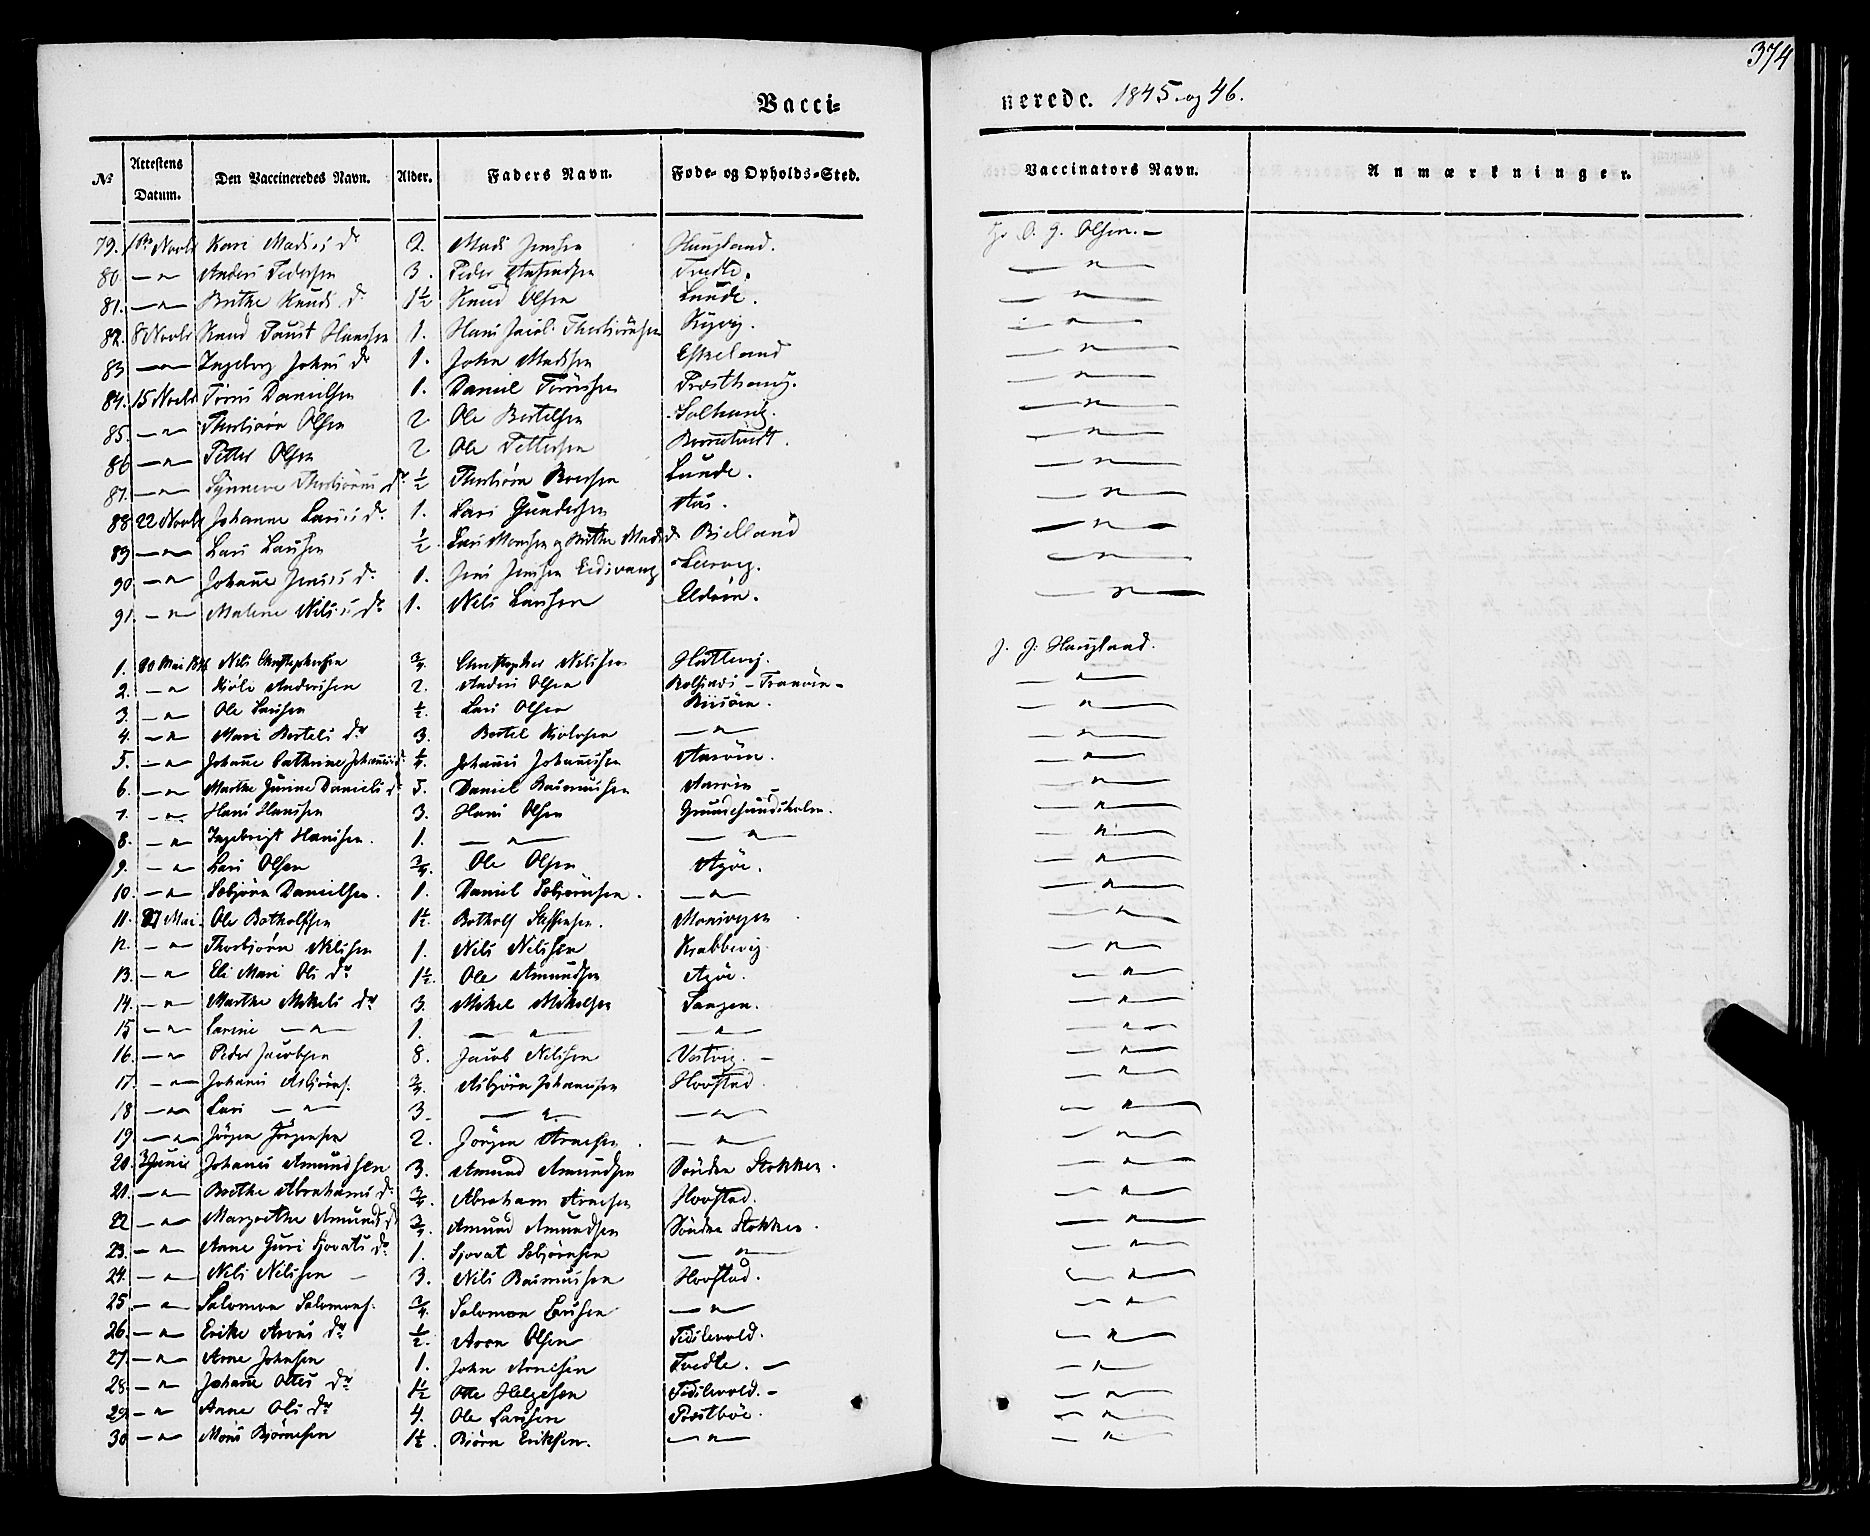 374
Vacci=
nerede. 1845 og 46.
№ Attestens Datum. Den Vaccineredes Navn. Alder. Faders Navn. Føde- og Opholds-Sted. Vaccinators Navn. Anmærkninger.
79. Novbr Kari Madsis dr 2. Mads Jensen Haugland. O. J. Olsen. —
80 — " Anders Pedersen 3. Peder Tvedte. — " —
81. — " — Brithe Knuds d. 1½ Knud Olsen Lunde. — " —
82. 8 Novbr Knud Hansen 1. Hans Jacob Thorbiörnsen — " —
83 — " — Ingeborg Johns dr 1. John Madsen Eskeland — " —
84. 15 Novbr Danielsen 1. Daniel — " —
85. — " — Thorbiörn Olsen 2 Ole Bertelsen — " —
86 — " — Petter Olsen 2 Ole Pettersen — " —
87. — " — Synneve Thorbiörns dr ½ Thorbiörn Lunde. — " —
88 22 Novbr Johanne Larsis dr. 1. Lars Gundersen Aas. — " —
89 — " — Lars Larsen ½ Lars Monsen og Brithe Mads d Bielland — " —
90 — " Johanne Jensis dr 1. Jens Jensen Leervig. — " —
91. — " — Malene Nilsis dr 1. Nils Larsen Eldöen. — " —
1. 20 Mai 1846 Nils Christophersen ¾ Christopher Nilssen J. J. Haugland.
2. — " Anderssen 2. Anders Olsen — " —
3. — " Ole Larsen ½. Lars Olsen — " —
4. — " Mari Bertels dr 3. Bertel — " — — " —
5. — " Johanne Cathrine Johannis d. Johannes Johannessen — " —
6. — " Marthe Daniels d 5. Daniel Rasmussen — " —
7. — " Hans Hanssen 3. Hans Olsen Grundesundsholm. — " —
8. — " Ingebrigt Hanssen. 1. — " — — " — — " —
9. — " Lars Olsen ¾. Ole Olsen Agöe. — " —
10. — " Sebjörn Danielsen. 1. Daniel Sebjörnsen. — " — — " —
11. Mai Ole Botholfsen 1½. Botholf Monsvogen — " —
12. — " Thorbjörn Nilsen 1. Nils Nilssen Krabbevig — " —
13. — " Eli Mari Ols dr 1½. Ole Amundsen Agöe. — " —
14. — " Marthe Mikkels dr 3. Mikkel Mikkelsen — " —
15 — " Larine — " — 1. — " — — " — — " —
16. — " Peder Jacobsen 8. Jacob Nilssen Vestvig. — — " —
17. — " Johanis Asbjörns. ¾ Asbjörn Johannesen Hovstad. — " —
18 — " Lars — " — 3. — " — — " — — " —
19 — " Jörgen Jörgensen 2. Jörgen Arnesen. — " — — " —
20. 3 Junii Johanis Amundsen 3. Amund Amundsen Söndre Stokken. — " —
21. — " Brithe Abrahams d. ¾. Abraham Arnesen Hovstad. — " —
22 — " Margrethe Amunds d ¾. Amund Amundsen Söndre Stokken. — " —
23. — " Anne Guri Sjovats dr 1. Sjovat Sebjörnsen — " — — " —
24. — " Nils Nilssen — 3. Nils Rasmussen Hovstad. — " —
25 — " Salomon Salomons. ¾ Salomon Larsen — " — — " —
26. — " Erike Arons dr ½. Aron Olsen — " —
27. — " Arne Johnsen 1. John Arnesen Tvedte. — — " —
28. — " Johanne Ottes dr 1½ Otte Helgesen — " —
29. — " Anne Ols dr 4. Ole Larssen — " —
30 — " Mons Bjørnesen 1½. Biörn Eriksen. — " — — " —